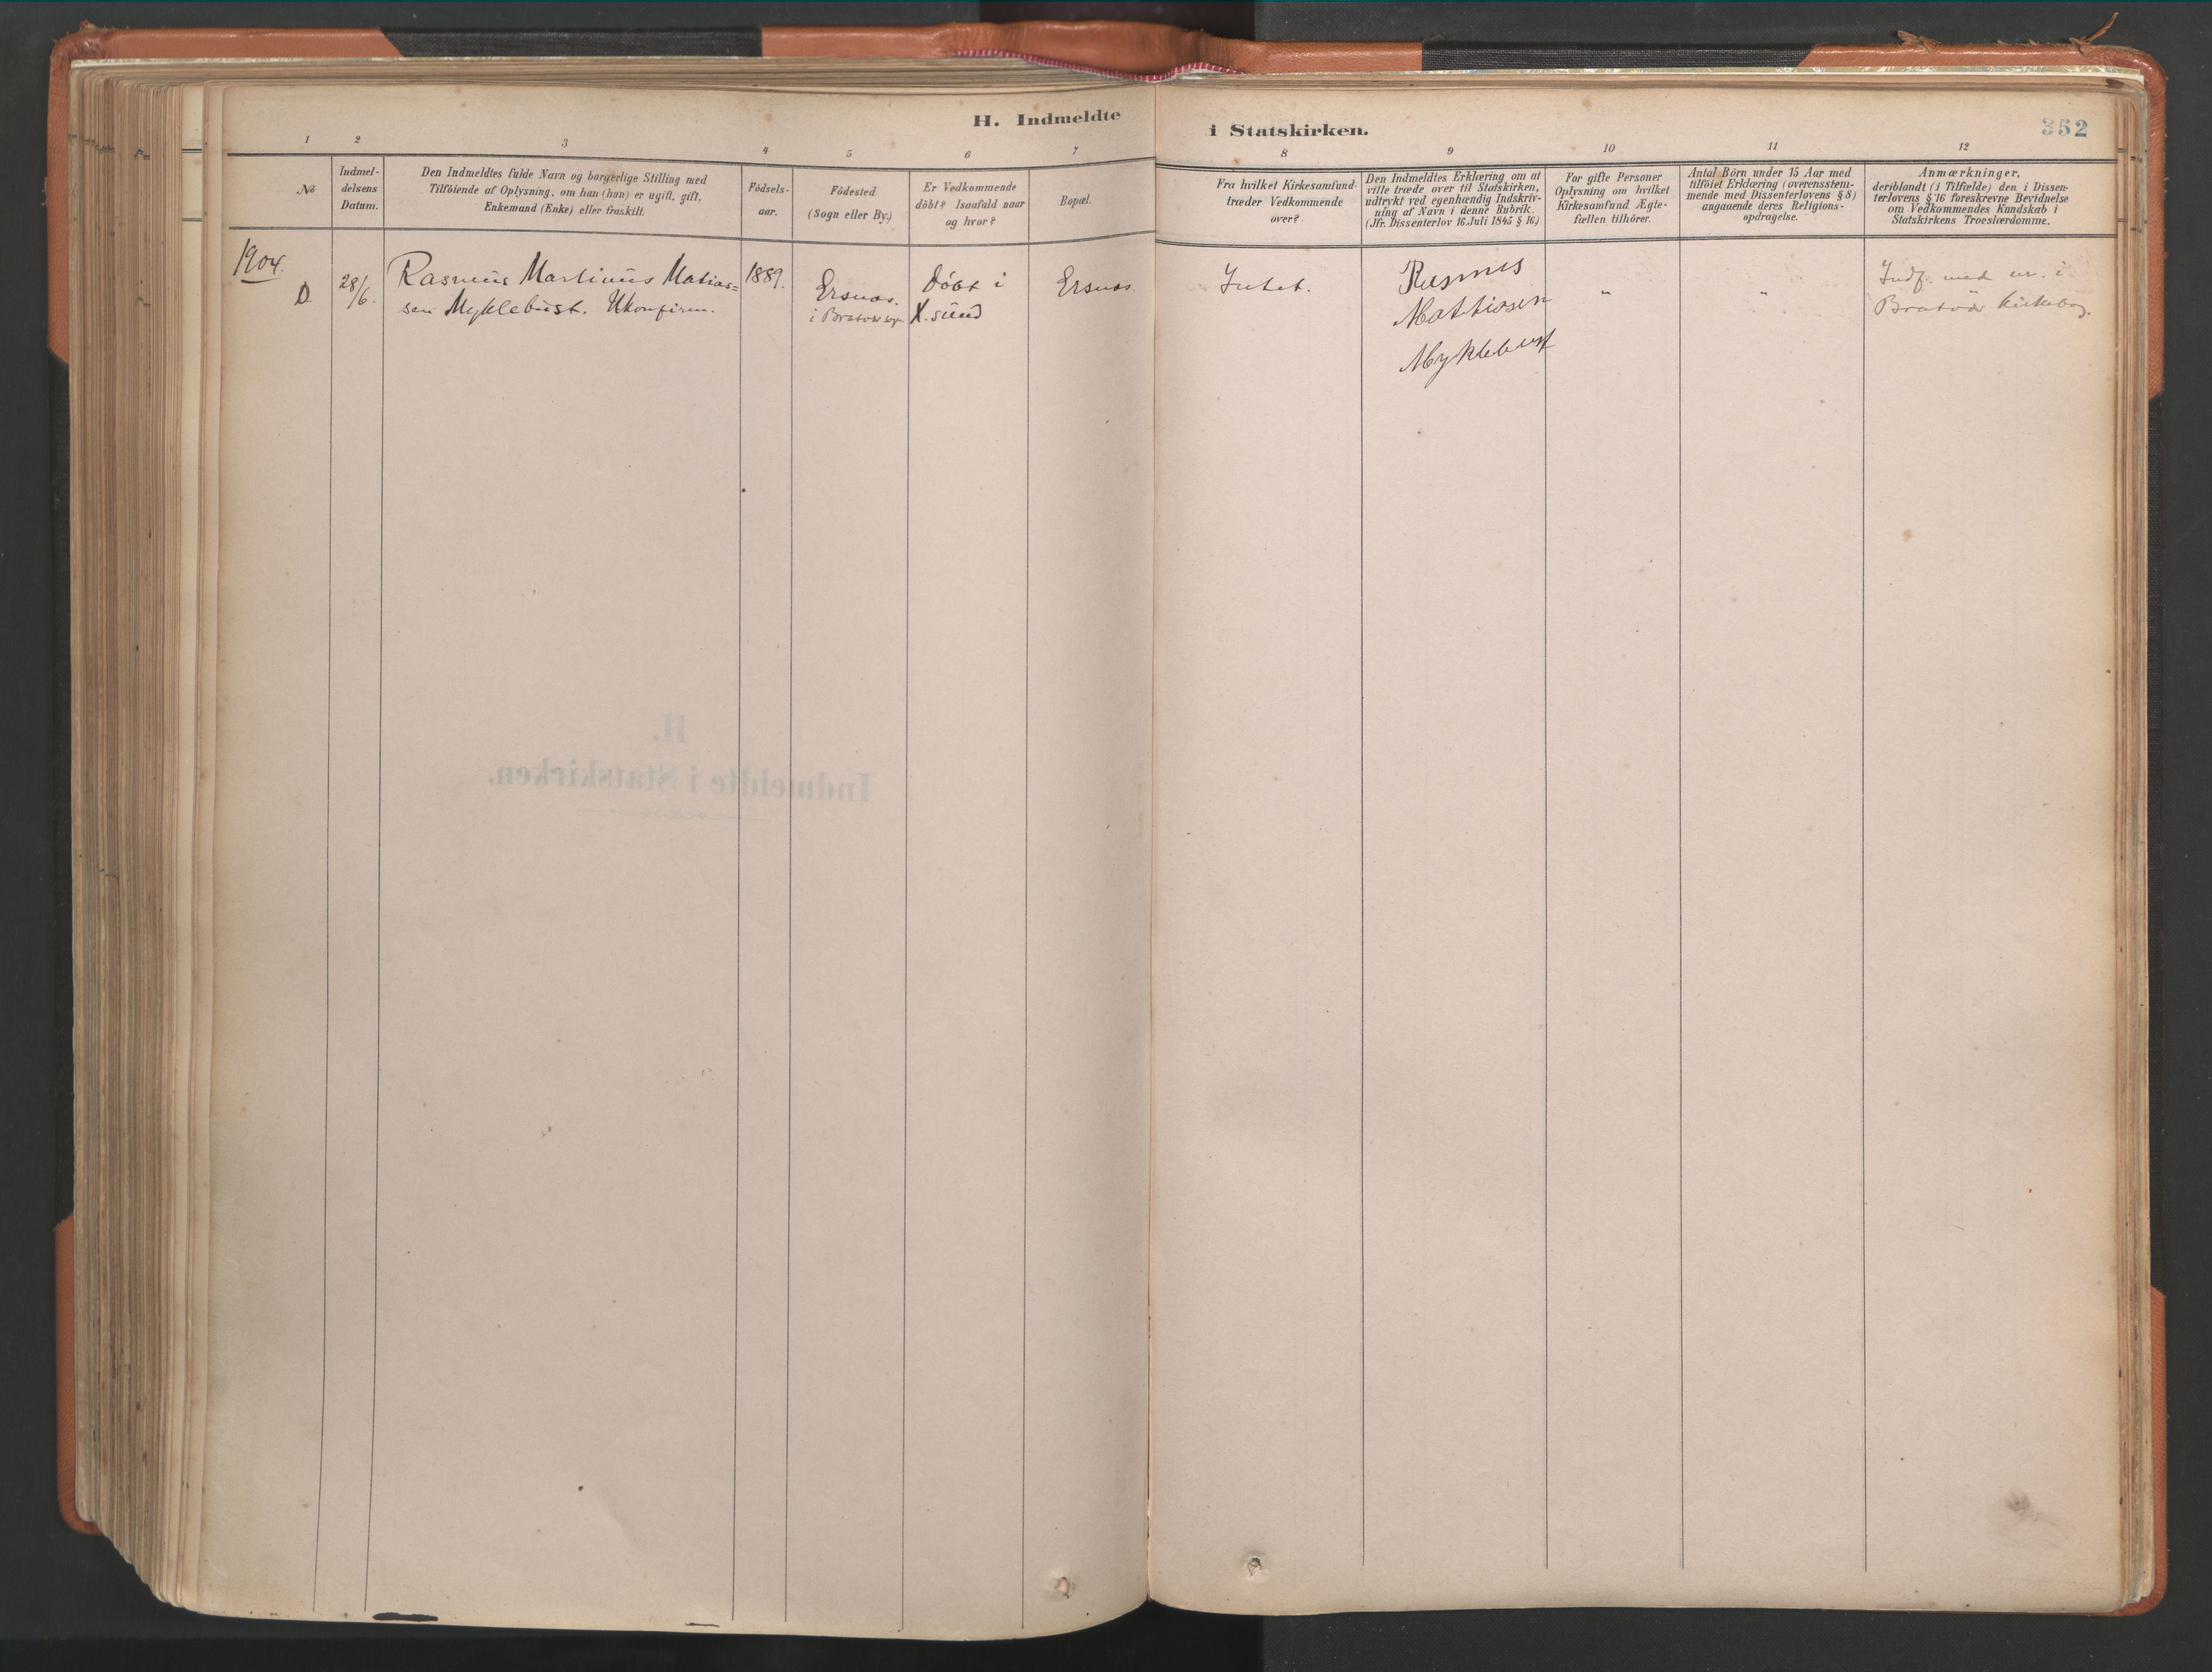 H. Indmeldte
i Statskirken.
352
1 2 3 4 5 6 7
8 9 10 11 12
No
Indmel-
delsens
Datum.
Den Indmeldtes fulde Navn og borgerlige Stilling med
Tilföiende af Oplysning, om han (hun) er ugift, gift,
Enkemand (Enke) eller fraskilt.
Födsels-
aar.
Födested
(Sogn eller By.)
Er Vedkommende
döbt? Isaafald naar
og hvor?
Bopæl.
Fra hvilket Kirkesamfund
træder Vedkommende
over?
Den Indmeldtes Erklæring om at
ville træde over til Statskirken,
udtrykt ved egenhændig Indskriv-
ning af Navn i denne Rubrik.
(Jfr. Dissenterlov 16. Juli 1845 § 16.)
For gifte Personer
Oplysning om hvilket
Kirkesamfund Ægte-
fællen tilhörer.
Antal Börn under 15 Aar med
tilföiet Erklæring (overensstem-
mende med Dissenterlovens § 8)
angaaende deres Religions-
opdragelse.
Anmærkninger,
deriblandt (i Tilfælde) den i Dissen-
terlovens § 16 foreskrevne Bevidnelse
om Vedkommendes Kundskab i
Statskirkens Troeslærdomme.
1904.
D.
28/6.
Rasmus Martinus Matias=
sen Myklebust. Ukonfirm.
1889.
Ersnas.
i
döbt i
X.sund
Ersnas
Intet.
Rasmus
Mathiasen
Myklebust
"
"
Indf. med nr. i
Kirkebog.
H.
Indmeldte i Statskirken.